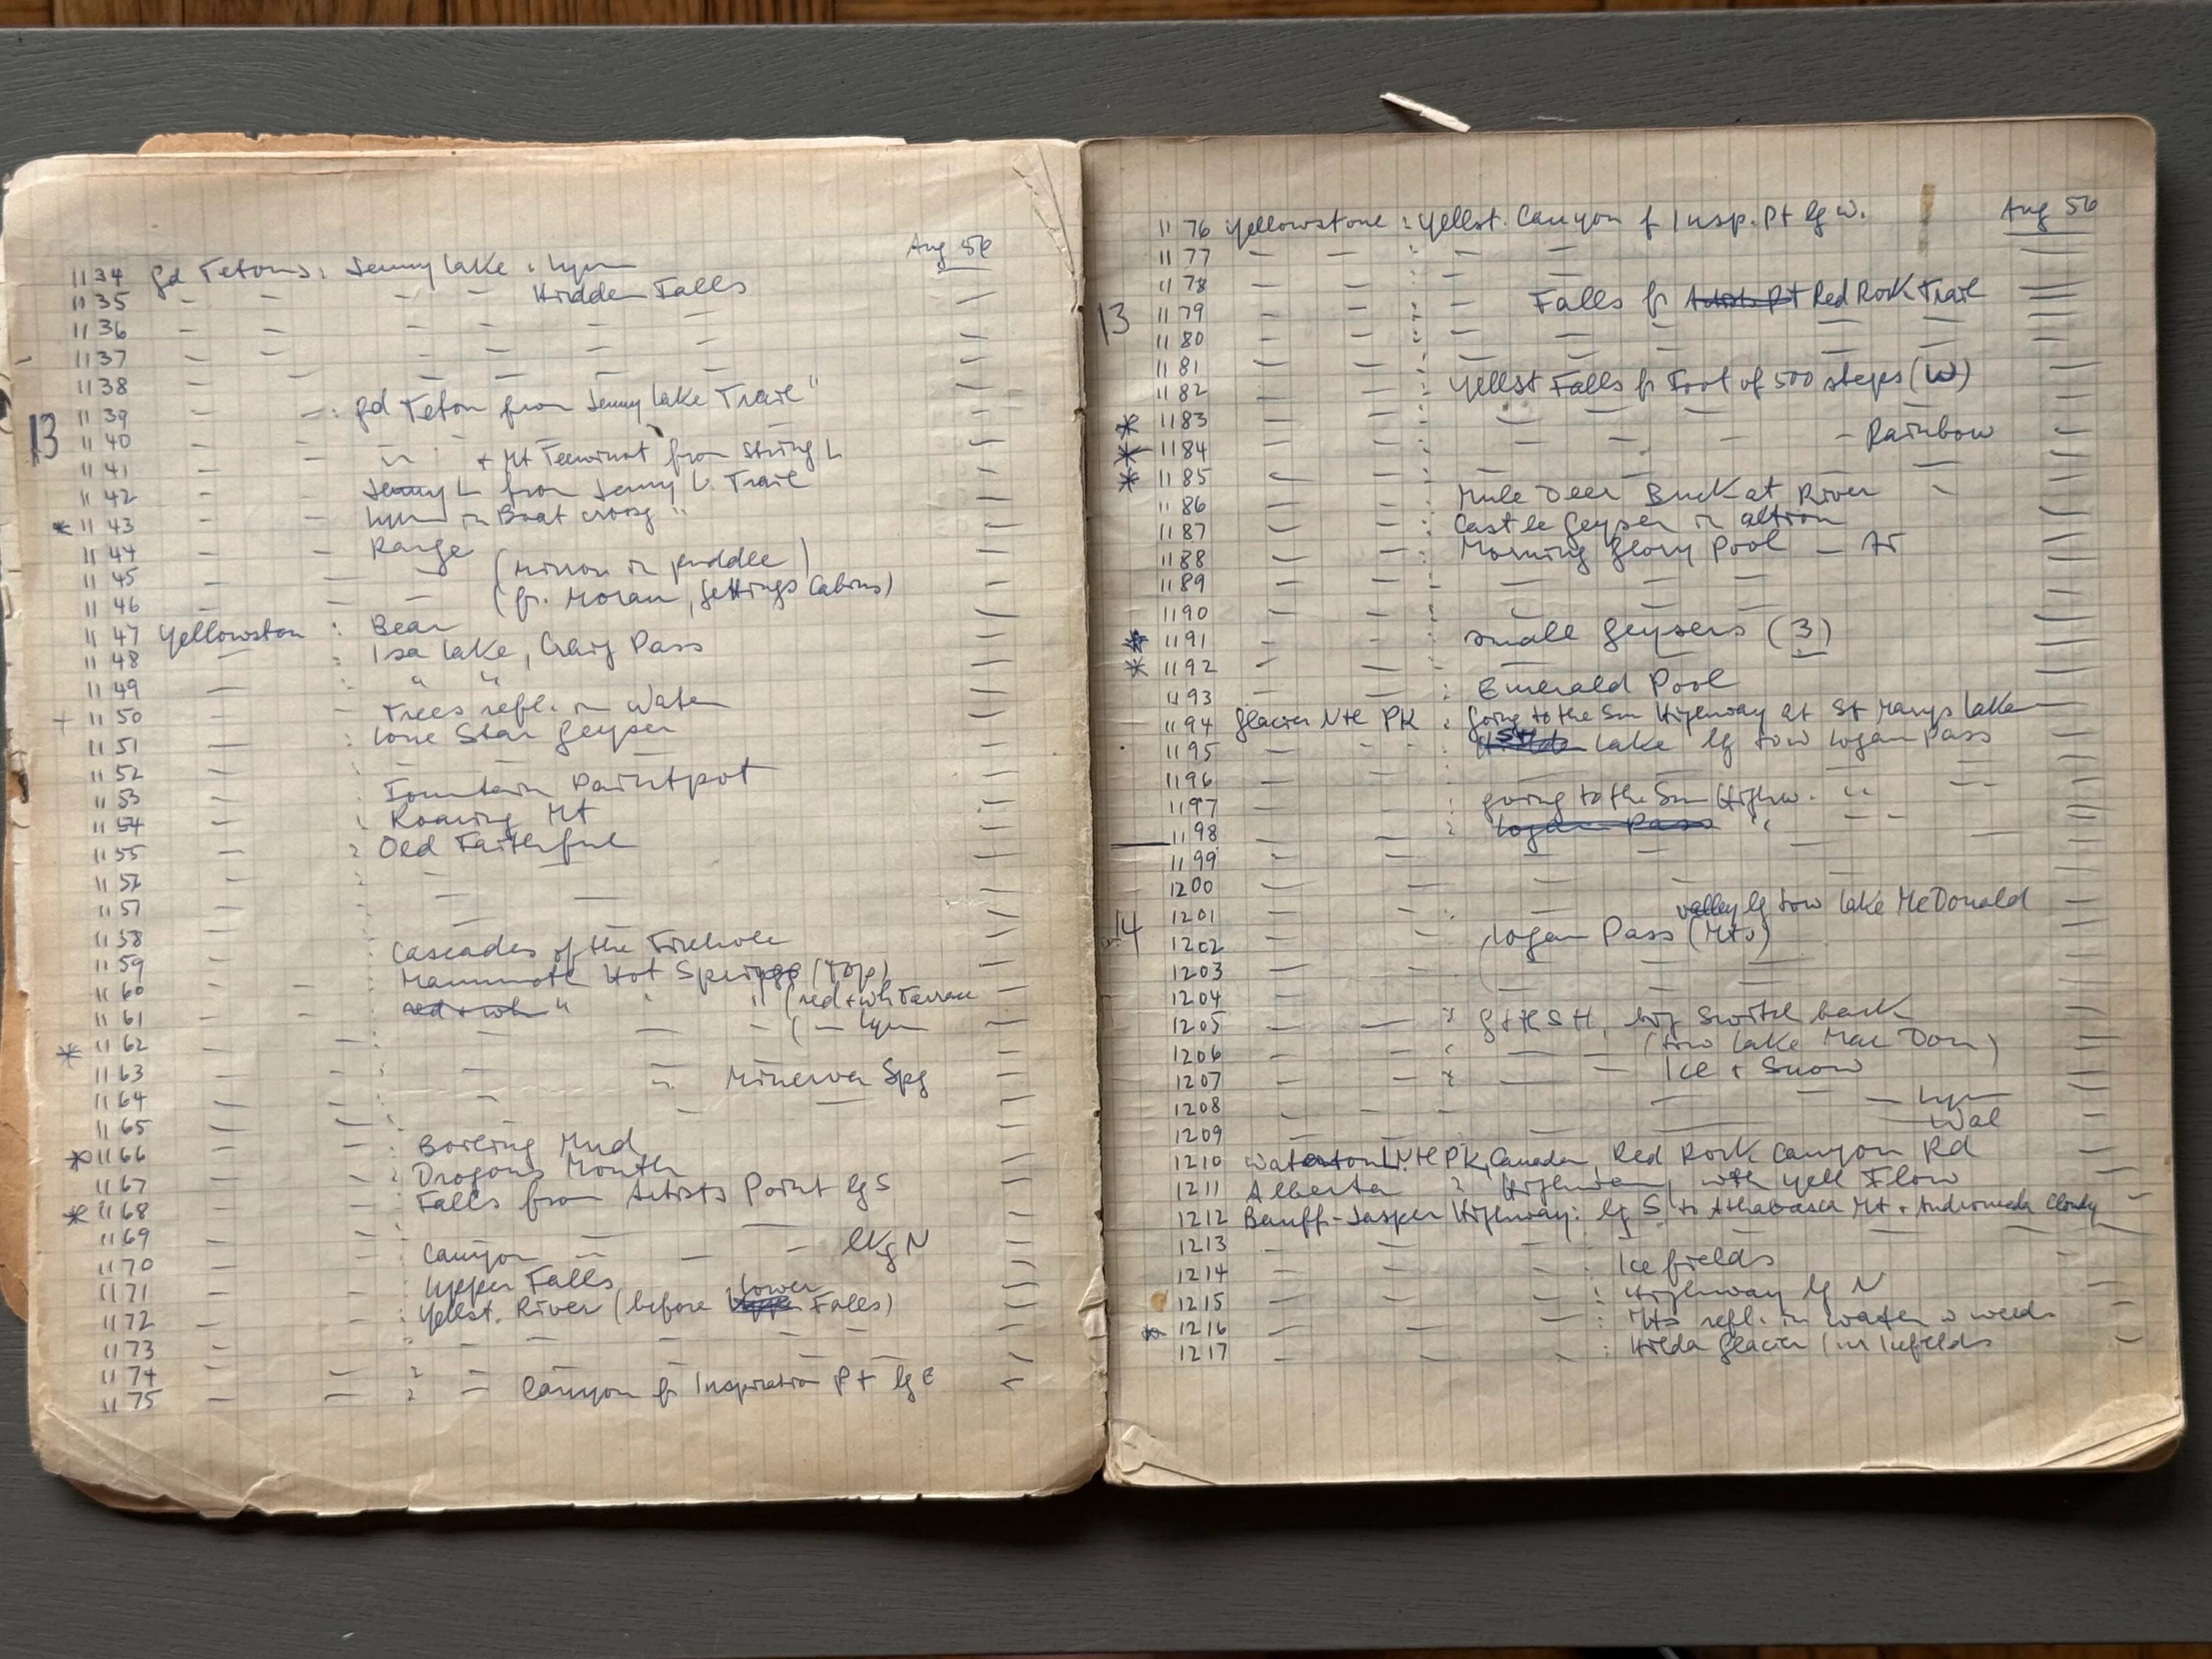 Aug 56
1134 gd Tetons: Jenny Lake: Lynn
1135 - - - - Hidden Falls
1136 - - - - - -
1137 - - - - - -
1138 - - - - - -
13
1139 - - : gd Teton from Jenny Lake Trail "
1140 - -
1141 - - " " + Mt Teewinot from String L
1142 - - Jenny L from Jenny L. Trail
* 1143 - - Lynn in Boat "
1144 - - Range
1145 - - - (Mirror in puddle)
1146 - - - (fr. Moran, Cabins)
1147 Yellowston : Bear
1148 - : Isa Lake, Craig Pass
1149 - : " "
+ 1150 - - Trees refl. in Water
1151 - : Lone Star Geyser
1152 - : -
1153 - : Fountain Paintpot
1154 - : Roaring Mt
1155 - : Old Faithful
1156 - : - -
1157 - - -
1158 - - -
1159 - Cascades of the Firehole
1160 - - Mammoth Hot Springs (top)
1161 - - red + wh " " " (red + wh Terrace
* 1162 - - - - - ( - Lynn
1163 - - -
1164 - - : - " Minerva Spg
1165 - - : - -
* 1166 - - : Boiling Mud
1167 - - : Dragons Mouth
* 1168 - - : Falls from Artists Point lg S
1169 - - : - -
1170 - - : Canyon - - - lkg N
1171 - - : Upper Falls
1172 - - : Yellst. River (before Lower Falls)
1173 - - : - - - -
1174 - - : - - - -
1175 - - : - Canyon fr Inspiration Pt lg E
Aug 56
1176 Yellowstone : Yellst. Canyon f Insp. Pt lg W.
1177 - - : - -
1178 - - : -
13
1179 - - : - Falls fr Artists Pt Red Rock Trail
1180 - - : - - - -
1181 - - : - - - -
1182 - - : Yellst Falls fr Foot of 500 steps (W)
* 1183 - - : - - - -
* 1184 - - : - - - - Rainbow
* 1185 - - : - - - -
1186 - - : Mule Deer Buck at River
1187 - - : Castle Geyser in
1188 - - : Morning Glory Pool -
1189 - - : - - -
1190 - - : - - -
* 1191 - - : small Geysers (3)
* 1192 - - : - -
1193 - - : Emerald Pool
1194 Glacier Ntl PK : Going to the Sun Highway at St Marys Lake
1195 - - : St M Lake lg tow Logan Pass
1196 - - : - - -
1197 - - : Going to the Sun Highw. " - -
1198 - - : Logan Pass " - -
1199 - - - -
1200 - - - -
14
1201 - - : - valley lg tow Lake McDonald
1202 - - : Logan Pass (Mts)
1203 - - : - - -
1204 - - : - - -
1205 - - : GttSH, big Switch back
1206 - - : - - (tow Lake Mac Don)
1207 - - : - - Ice + Snow
1208 - - - - - - Lynn
1209 - - - - - Wal
1210 Waterton L. Ntl PK, Canada, Red Rock Canyon Rd
1211 Alberta : Highway, with yell Flow
1212 Banff-Jasper Highway: lg S to Athabasca Mt + Andromeda Cloudy
1213 - - - : - - -
1214 - - - : Icefields
1215 - - - : Highway lg N
* 1216 - - - : Mts refl. in water w weeds
1217 - - - : Hilda Glacier (in Icefields